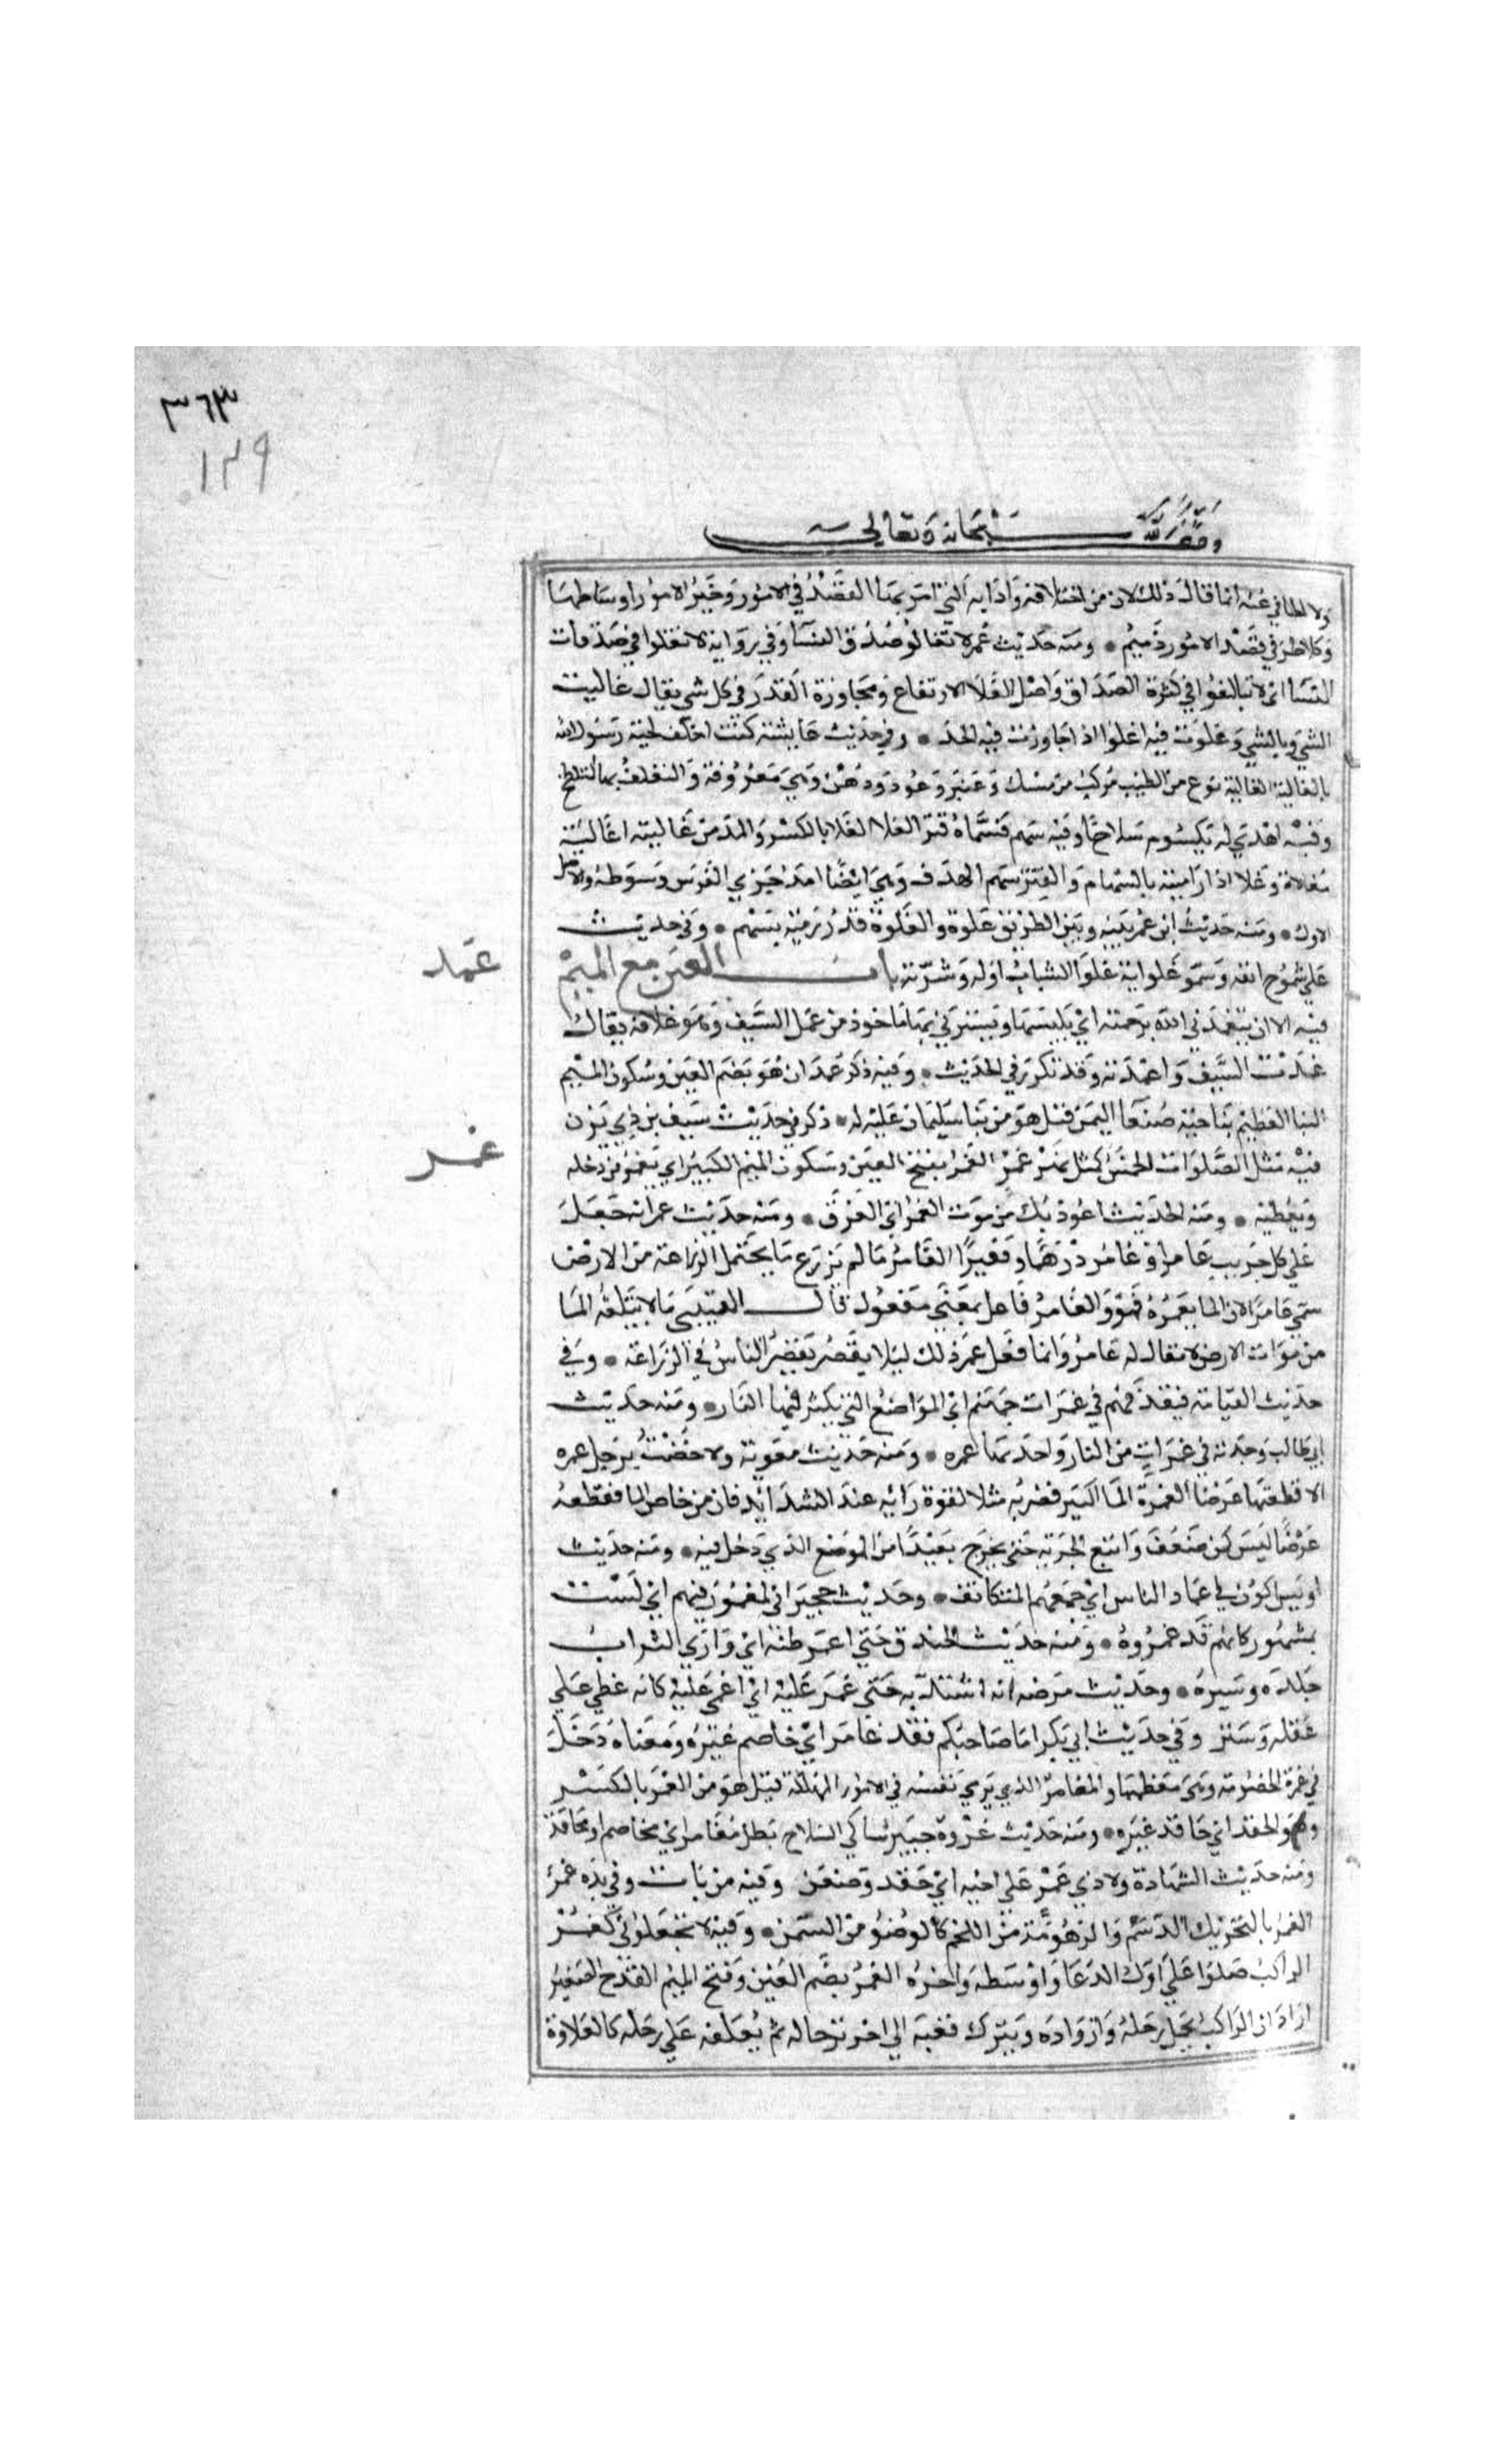 ٣٦٣
١٣٩
وقف لله سبحانه وتعالى
ولا الجافي عنه انما قال ذلك لان من اخلاقه وادابه التي امر بها القصد في الامور وخير الامور اوساطها
وكلا طرفي قصد الامور ذميم ومنه حديث عمر لا تغالوا صدق النسا وفي رواية لا تغلوا في صدقات
النسا اي لا تبالغوا في كثرة الصداق واصل الغلا الارتفاع ومجاوزة القدر في كل شي يقال غاليت
الشي وبالشي وغلوت فيه اغلوا اذا جاوزت فيه الحد وفي حديث عايشة كنت اغلف لحية رسول الله
بالغالية الغالية نوع من الطيب مركب من مسك وعنبر وعود ودهن وهي معروفة والتغلف بها التلطخ
وفيه اهدي له يكسوم سلاحا وفيه سهم فسماه قتر الغلا الغلا بالكسر والمد من غاليته اغاليه
مغلاة وغلا اذا راميته بالسهام والقتر سهم الهدف وهي ايضا امد جري الفرس وشوطه والاصل
الاول ومنه حديث ابن عمر بينه وبين الطريق غلوة والغلوة قدر رمية بسهم وفي حديث
علي شموخ انفه وسمو غلوايه غلوا الشباب اوله وشرته باب الغين مع الميم
غمد
فيه الا ان يتغمدني الله برحمته اي يلبسها ويسترني بها ماخوذ من غمد السيف وهو غلافه يقال
غمدت السيف واغمدته وقد تكرر في الحديث وفيه ذكر غمدان هو بضم الغين وسكون الميم
البنا العظيم بناحية صنعا اليمن قيل هو من بنا سليمان عليه له ذكر في حديث سيف بن ذي يزن
غمر
فيه مثل الصلوات الخمس كمثل نهر غمر الغمر بفتح الغين وسكون الميم الكبير اي يغمر من دخله
ويغطيه ومنه الحديث اعوذ بك من موت الغمر اي الغرق ومنه حديث عمر انه جعل
علي كل جريب عامر او غامر درهما وقفيزا الغامر ما لم يزرع مما يحتمل الزراعة من الارض
سمي غامرا لان الما يغمره فهو والغامر فاعل بمعنى مفعول قال القتيبي ما لا يبلغه الما
من موات الارض لا يقال له غامر وانما فعل عمر ذلك ليلا يقصر الناس في الزراعة وفي
حديث القيامة فيقذفهم في غمرات جهنم اي المواضع التي يكثر فيها النار ومنه حديث
ابي طالب وجدته في غمرات من النار واحدتها غمره ومنه حديث معوية ولا خضت برجل غمره
الا قطعتها عرضا الغمرة الما الكبير فضربه مثلا لقوة رايه عند الشدايد فان من خاض الما فقطعه
عرضا ليس كمن ضعف واتبع الجرية حتي يخرج بعيدا من الموضع الذي دخل فيه ومنه حديث
اويس اكون في غمار الناس اي جمعهم المتكاثف وحديث حجير اني لمغمور فيهم اي لست
بمشهور كانهم قد غمروه ومنه حديث الخندق حتي اغمر بطنه اي وارى التراب
جلده وستره وحديث مرضه انه اشتد به حتى غمر عليه اي اغمي عليه كانه غطي علي
عقله وستر وفي حديث ابي بكر اما صاحبكم فقد غامر اي خاصم غيره ومعناه دخل
في غمرة الخصومة وهي معظمها والمغامر الذي يرمي نفسه في الامور المهلكة قيل هو من الغمر بالكسر
وهو الحقد اي حاقد غيره ومنه حديث غزوة خيبر شاكي السلاح بطل مغامر اي مخاصم او محاقد
ومنه حديث الشهادة ولا ذي غمر علي اخيه اي حقد وضغن وفيه من بات وفي يده غمر
الغمر بالتحريك الدسم والزهومة من اللحم كالوضر من السمن وفيه لا تجعلوني كغمر
الراكب صلوا علي اول الدعا واوسطه واخره الغمر بضم الغين وفتح الميم القدح الصغير
اراد ان الراكب يحمل رحله وازواده ويترك قعبه الي اخر ترحاله ثم يعلقه علي رحله كالعلاوة